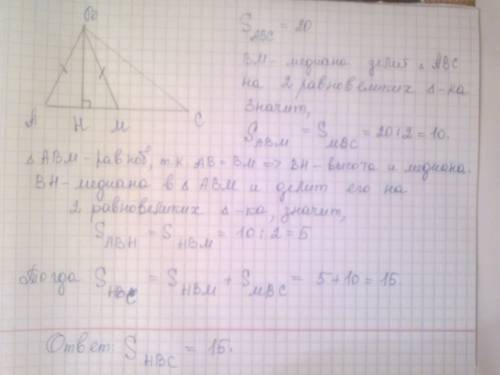 B
A H M C
S_ABC = 20
BM - медиана делит △ ABC
на 2 равновеликих △-ка
Значит,
S_ABM = S_MBC = 20:2 = 10.
△ ABM - равноб, т.к. AB = BM => BH - высота и медиана.
BH - медиана в △ ABM и делит его на
2 равновеликих △-ка, значит,
S_ABH = S_HBM = 10:2 = 5
Тогда S_HBC = S_HBM + S_MBC = 5+10 = 15.
Ответ: S_HBC = 15.